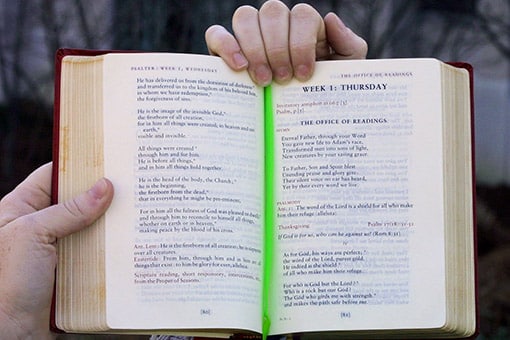 PSALTER : WEEK 1, WEDNESDAY
He has delivered us from the dominion of darkness
and transferred us to the kingdom of his beloved
in whom we have redemption,
the forgiveness of sins.
He is the image of the invisible God,*
the firstborn of all creation,
for in him all things were created, in heaven and on
earth,*
visible and invisible.
All things were created *
through him and for him.
He is before all things,*
and in him all things hold together.
He is the head of the body, the Church;*
he is the beginning,
the firstborn from the dead,*
that in everything he might be pre-eminent.
For in him all the fulness of God was pleased to dwell,*
and through him to reconcile to himself all things,
whether on earth or in heaven,*
making peace by the blood of his cross.
Ant. Lent: He is the firstborn of all creation; he is supreme
over all creatures.
Eastertide: From him, through him and in him are all
things that exist: to him be glory for ever, alleluia.
Scripture reading, short responsory, intercessions,
from the Proper of Seasons.
[80]
THE OFFICE OF READINGS
WEEK 1: THURSDAY
Invitatory antiphon
Psalm, p.[3]
THE OFFICE OF READINGS
HYMN
Eternal Father, through your Word
You gave new life to Adam's race,
Transformed men into sons of light,
New creatures by your saving grace.
To Father, Son and Spirit blest
Unending praise and glory give.
Their silent voice no ear has heard,
Yet by their every word we live.
PSALMODY
Ant. 1: The word of the Lord is a shield for all who make
him their refuge (alleluia).
Thanksgiving
If God is for us, who can be against us? (Rom 8:31).
IV
As for God, his ways are perfect;
the word of the Lord, purest gold.
He indeed is the shield *
of all who make him their refuge.
For who is God but the Lord?*
Who is a rock but our God?
The God who girds me with strength *
and makes the path safe before me.
[81]